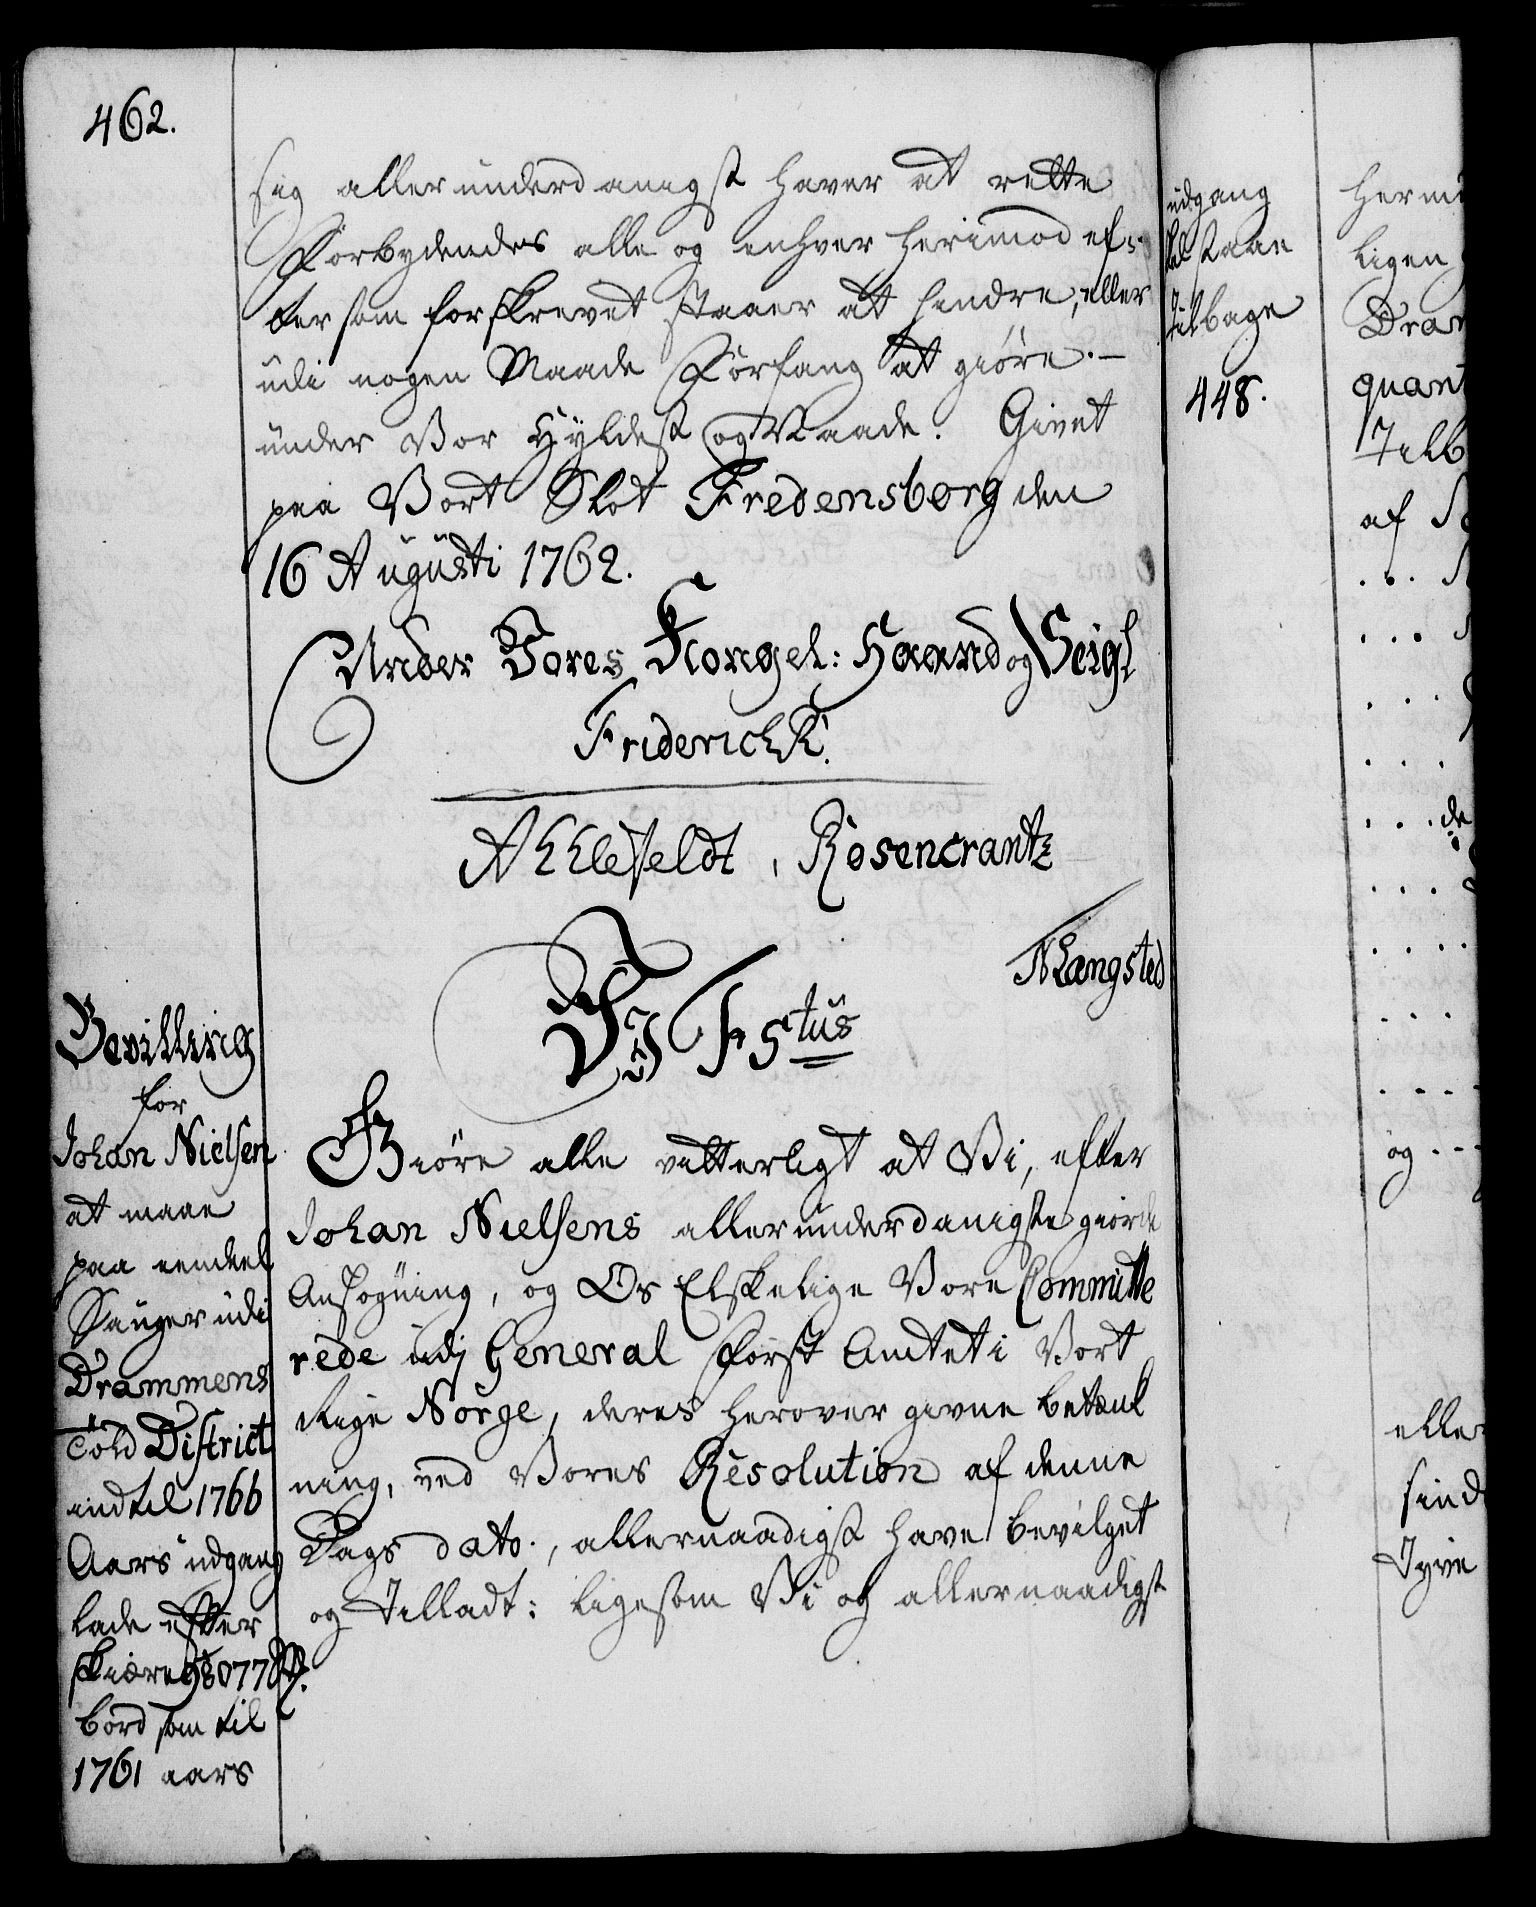 462.
sig allerunderdanigst haver at rette
Forbydendes alle og enhver herimod ef-
ter som forskrevet staaer at hindre, eller
udi nogen Maade Forfang at giøre.-
under Vor Hyldest og Naade. Givet
paa Vort Slot Fredensborg den
16 Augusti 1762.
Under Vores Kongel: Haand og Seigl
Friderich R.
Ahlefeldt, Rosencrantz
N Langsted
Vi F 5tus
Giøre alle vitterligt at Vi, efter
Johan Nielsens allerunderdanigste giorde
Ansøgning, og Os Elskelige Vore Committe
rede udj General Forst Amtet i Vort
Rige Norge, deres herover givne betænk
ning, ved Vores Resolution af denne
Dags dato., allernaadigst have bevilget
og Tilladt: ligesom Vi og allernaadigst
Bevilling
for
Johan Nielsen
at maae
paa eendeel
Sauger udi
Drammens
Told District
indtil 1766
Aars udgang
lade efter
skiære 98077
bord som til
1761 aars
udgang
staae
tilbage
448.
herm
ligen
Dram
quant
Tilb
af
. . .
. . .
. . .
. . .
. . . de
. . .
. . . .
. . . .
. . . .
og . . .
eller
sind
Tyve